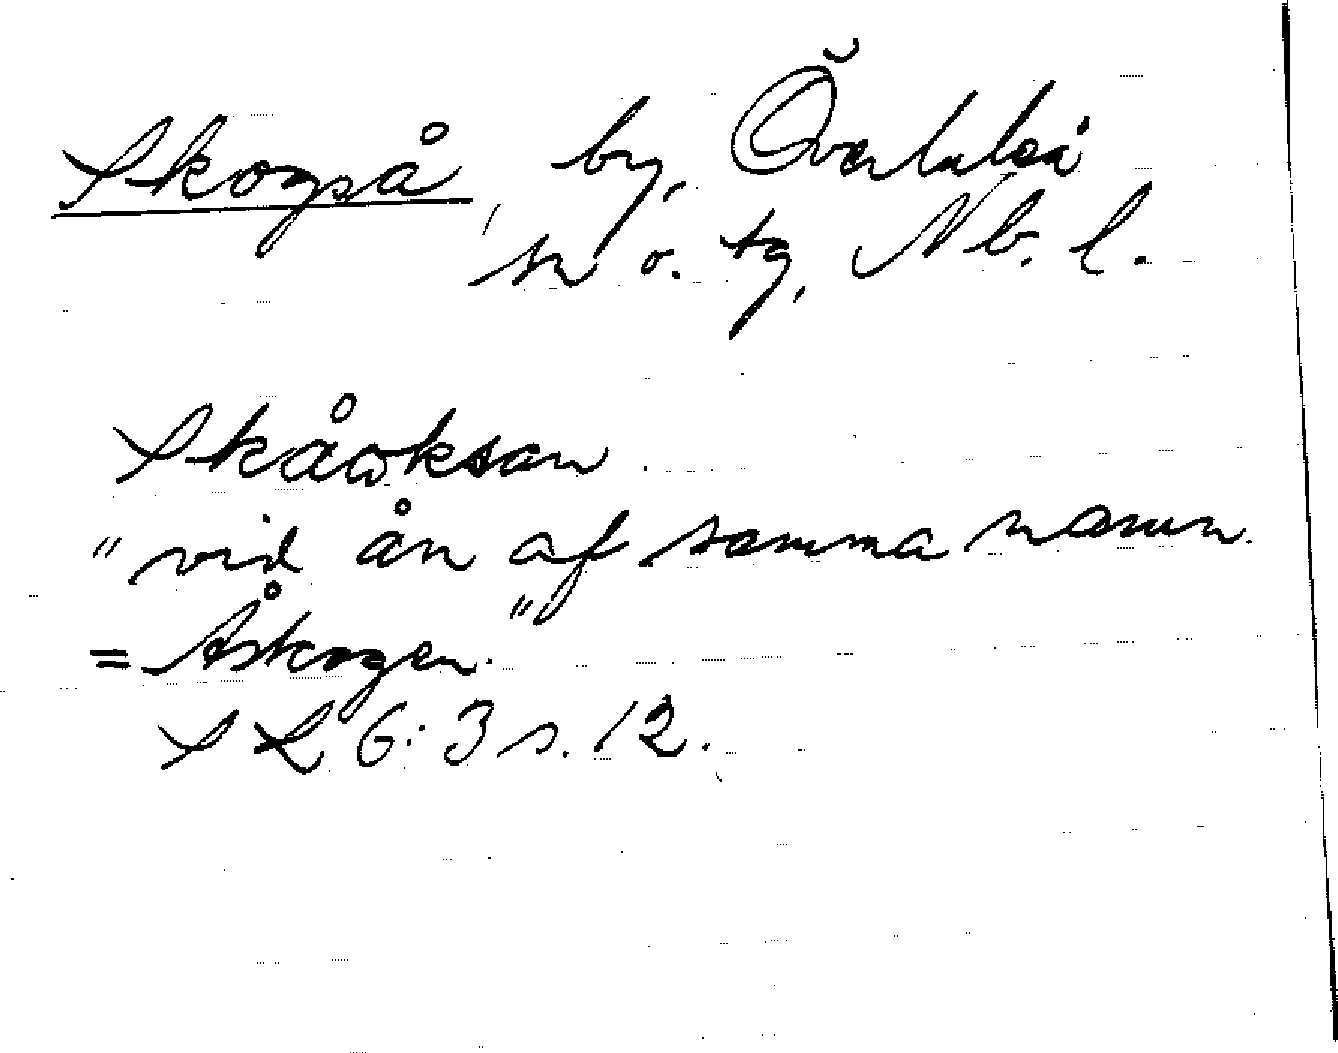 Skogså, by, Överluleå
sn o. tg, Nb. l.
Skåoksan
"vid ån af samma namn.
= Åskogen."
SL 6:3 s. 12.